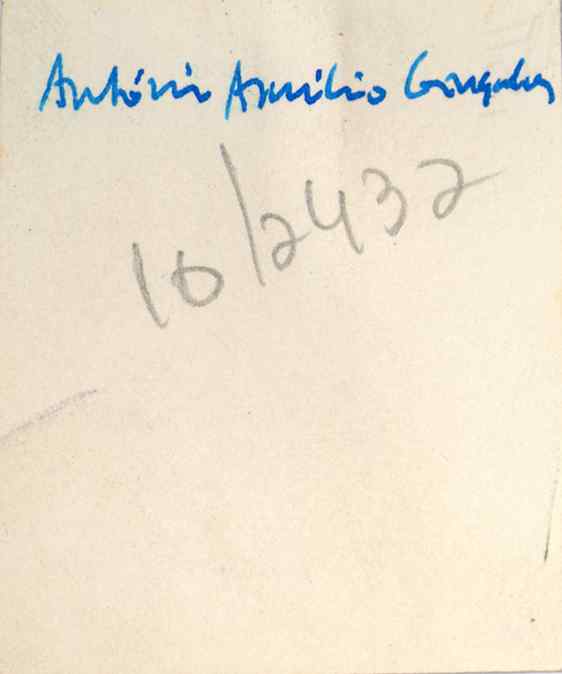 António Aurélio Gonçalves
10/2432